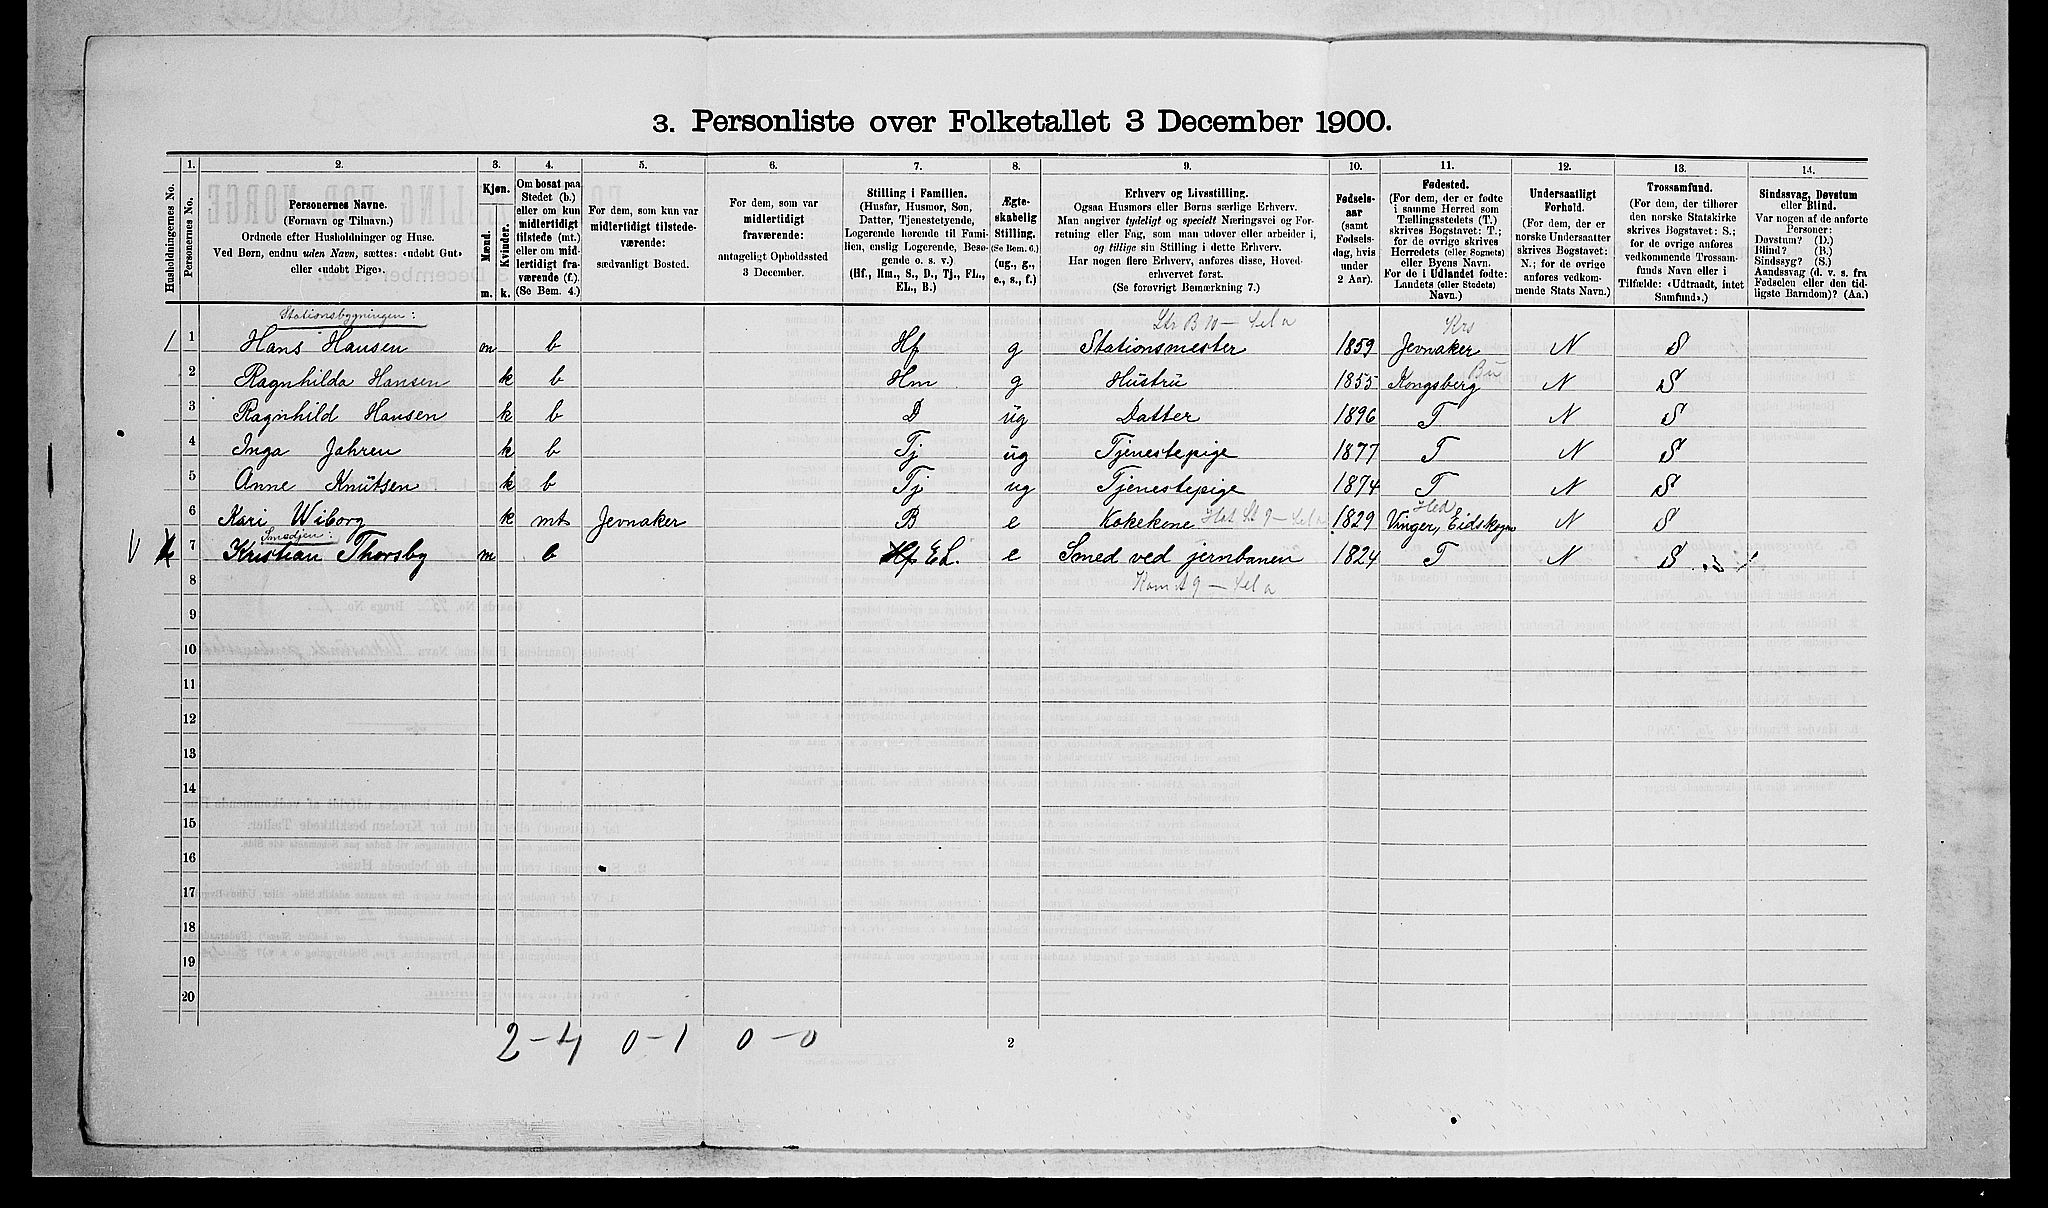 3. Personliste over Folketallet 3 December 1900.
Husholdningernes No.
1. Personernes No.
2. Personernes Navne.
(Fornavn og Tilnavn.)
Ordnede efter Husholdninger og Huse.
Ved Børn, endnu uden Navn, sættes: «udøbt Gut»
eller «udøbt Pige».
3. Kjøn.
Mænd. m.
Kvinder. k.
4. Om bosat paa
Stedet (b.)
eller om kun
midlertidigt
tilstede (mt.)
eller om mid-
lertidigt fra-
værende (f.).
(Se Bem. 4.)
5. For dem, som kun var
midlertidigt tilstede-
værende:
sædvanligt Bosted.
6. For dem, som var
midlertidigt
fraværende:
antageligt Opholdssted
3 December.
7. Stilling i Familien.
(Husfar, Husmor, Søn,
Datter, Tjenestetyende,
Logerende hørende til Fami-
lien, enslig Logerende, Besø-
gende o. s. v.)
(Hf., Hm., S., D., Tj., FL.,
EL., B.)
8. Ægte-
skabelig
Stilling.
(Se Bem. 6.)
(ug., g.,
e., s., f.)
9. Erhverv og Livsstilling.
Ogsaa Husmors eller Børns særlige Erhverv.
Man angiver tydeligt og specielt Næringsvei og For-
retning eller Fag, som man udøver eller arbeider i,
og tillige sin Stilling i dette Erhverv.
Har nogen flere Erhverv, anføres disse, Hoved-
erhvervet først.
(Se forøvrigt Bemærkning 7.)
10. Fødsels-
aar
(samt
Fødsels-
dag, hvis
under
2 Aar).
11. Fødested.
(For dem, der er fødte
i samme Herred som
Tællingsstedets (T.)
skrives Bogstavet: T.;
for de øvrige skrives
Herredets (eller Sognets)
eller Byens Navn.
For de i Udlandet fødte:
Landets (eller Stedets)
Navn.)
12. Undersaatligt
Forhold.
(For dem, der er
norske Undersaatter
skrives Bogstavet:
N.; for de øvrige
anføres vedkom-
mende Stats Navn.)
13. Trossamfund.
(For dem, der tilhører
den norske Statskirke
skrives Bogstavet: S.;
for de øvrige anføres
vedkommende Trossam-
funds Navn eller i
Tilfælde: «Udtraadt, intet
Samfund».)
14. Sindssvag, Døvstum
eller Blind.
Var nogen af de anførte
Personer:
Døvstum? (D.)
Blind? (B.)
Sindssyg? (S.)
Aandssvag (d. v. s. fra
Fødselen eller den tid-
ligste Barndom)? (Aa.)
Stationsbygningen:
1 1 Hans Hansen m b Hf g Stationsmester 1859 Jevnaker N S
2 Ragnhilda Hansen k b Hm g Hustru 1855 Kongsberg Bu N S
3 Ragnhild Hansen k b D ug Datter 1896 T N S
4 Inga Jahren k b Tj ug Tjenestepige 1877 T N S
5 Anne Knutsen k b Tj ug Tjenestepige 1874 T N S
6 Kari Wiborg k mt Jevnaker B e Kokekone 1829 Vinger, Eidskogn Hed N S
Smedjen:
7 Kristian Thorsby m b Hf EL. e Smed ved jernbanen 1824 T N S
8
9
10
11
12
13
14
15
16
17
18
19
20
2-4 0-1 0-0
2